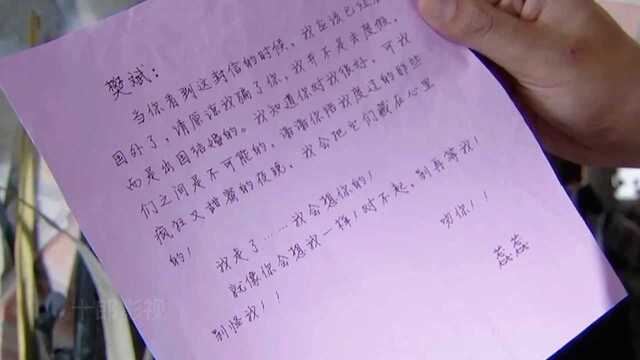 樊斌：
当你看到这封信的时候，我应该已经在
国外了，请原谅我骗了你，我并不是去度假，
而是出国结婚的。我知道你对我很好，可我
们之间是不可能的，谢谢你陪我度过的那些
疯狂又甜蜜的夜晚，我会把它们藏在心里
的！
我走了……我会想你的！
就像你会想我一样！对不起，别再等我！
别怪我！！
吻你！！
蕊蕊
十郎影视